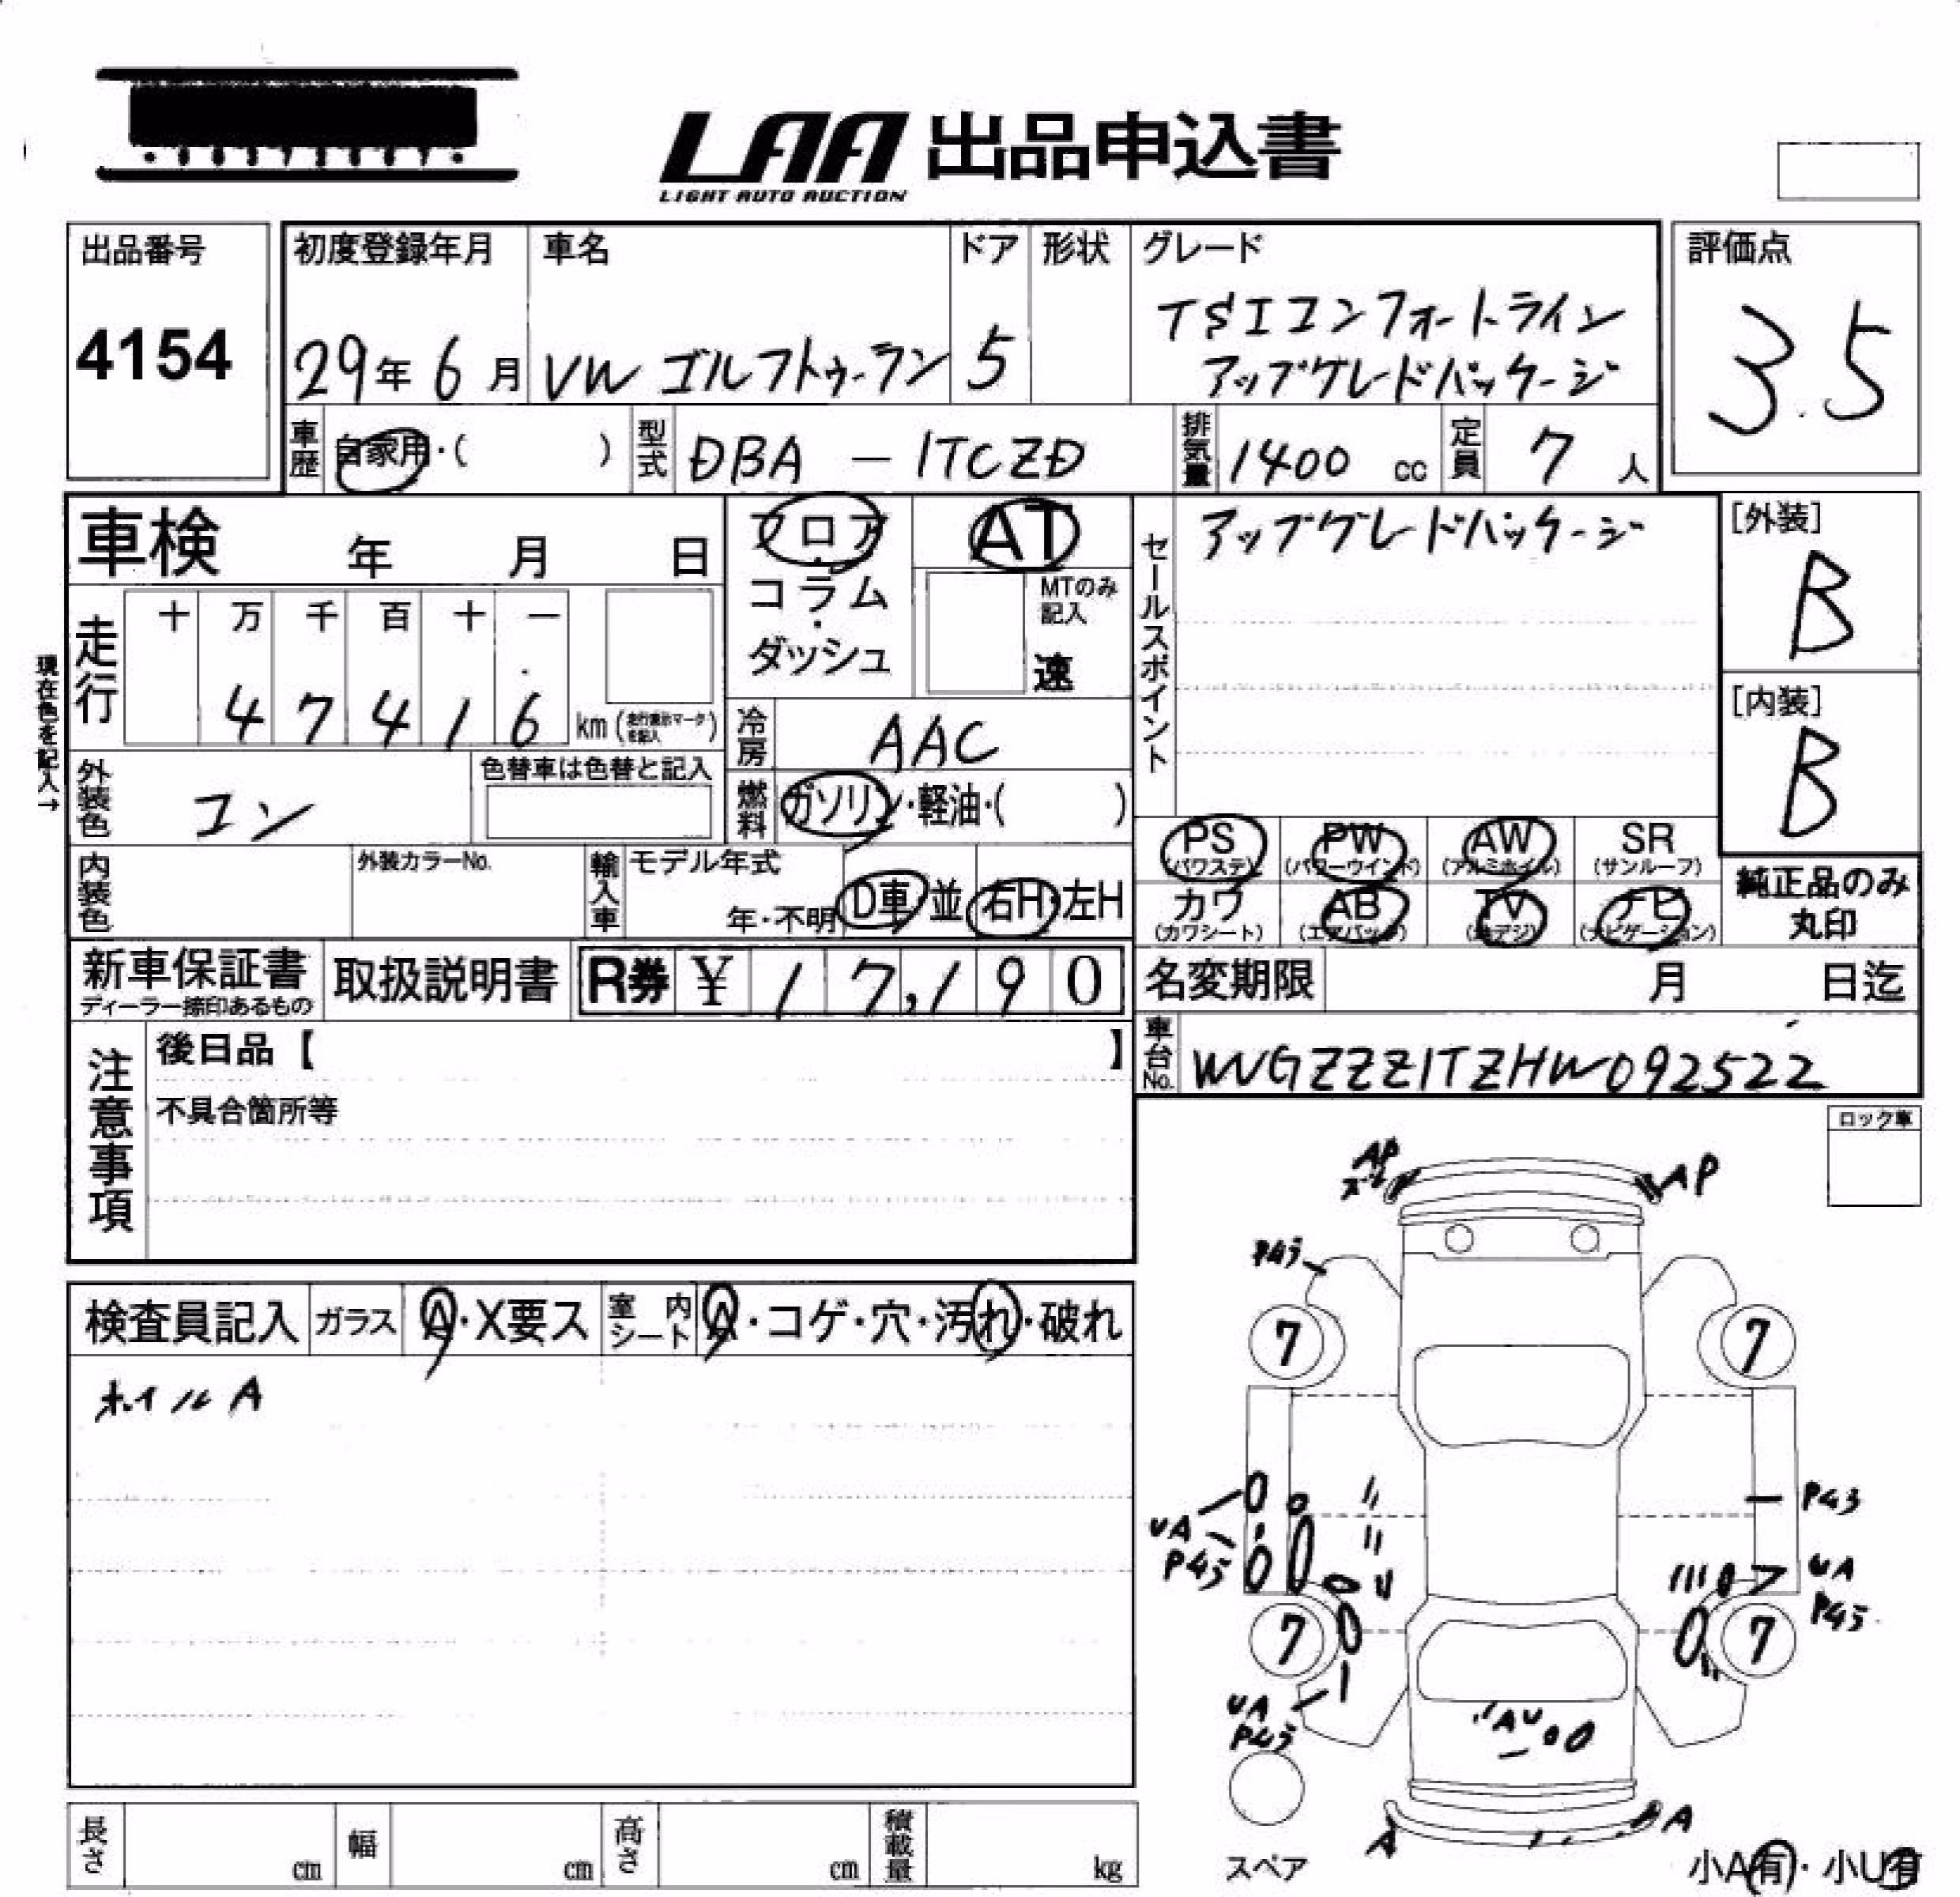 LAA 出品申込書
LIGHT AUTO AUCTION
出品番号
4154
初度登録年月 車名 ドア 形状 グレード
29年 6月 VW ゴルフトゥーラン 5 TSIコンフォートライン
アップグレードパッケージ
評価点
3.5
車歴 自家用・( ) 型式 DBA - 1TCZD 排気量 1400 cc 定員 7 人
車検 年 月 日
フロア
コラム
・
ダッシュ
AT
MTのみ
記入
速
セールスポイント
アップグレードパッケージ
[外装]
B
[内装]
B
現在色を記入→
走行 十 万 千 百 十 一
4 7 4 1 6 km (走行表示マークを記入)
冷房 AAC
外装色 コン 色替車は色替と記入
燃料 ガソリン・軽油・( )
PS PW AW SR
(パワステ) (パワーウインド) (アルミホイル) (サンルーフ)
カワ AB TV ナビ
(カワシート) (エアバック) (地デジ) (ナビゲーション)
純正品のみ
丸印
内装色 外装カラーNo. 輸入車 モデル年式
年・不明 D車 並 右H・左H
新車保証書 取扱説明書 R券 ¥ 1 7,1 9 0
ディーラー捺印あるもの
名変期限 月 日迄
車台No. WVGZZZ1TZHW092522
注意事項
後日品【 】
不具合箇所等
ロック車
検査員記入 ガラス A・X要ス 室内シート A・コゲ・穴・汚れ・破れ
ホイルA
AP AP
P4ろ
7 7
UA
P4ろ
P4ろ
UA
P4ろ
7 7
UA
P4ろ
AU
A A
スペア
小A有・小U有
長さ cm 幅 cm 高さ cm 積載量 kg